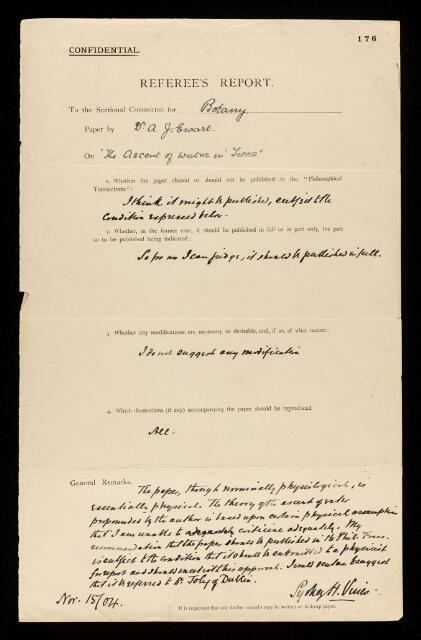 176
CONFIDENTIAL.
REFEREE'S REPORT.
To the Sectional Committee for Botany
Paper by Dr. A. J. Ewart.
On "The Ascent of Water in Trees"
1. Whether the paper should or should not be published in the "Philosophical
Transactions":
I think it might be published, subject to the
condition expressed below-
2. Whether, in the former case, it should be published in full or in part only, the part
so to be published being indicated:
So far as I can judge, it should be published in full.
3. Whether any modifications are necessary or desirable, and, if so, of what nature:
I do not suggest any modification
4. Which illustrations (if any) accompanying the paper should be reproduced
All-
General Remarks. The paper, though nominally physiological, is
essentially physical. The theory of the ascent of water
propounded by the author is based upon certain physical assumptions
that I am unable to adequately criticise adequately. My
recommendation that the paper should be published in the Phil. Trans.
is subject to the condition that it should be submitted to a physicist
for report and should meet with his approval. I would venture to suggest
that it be referred to Dr. Joly of Dublin.
Sydney H. Vines
Nov. 15/04.
It is requested that any further remarks may be written on foolscap paper.